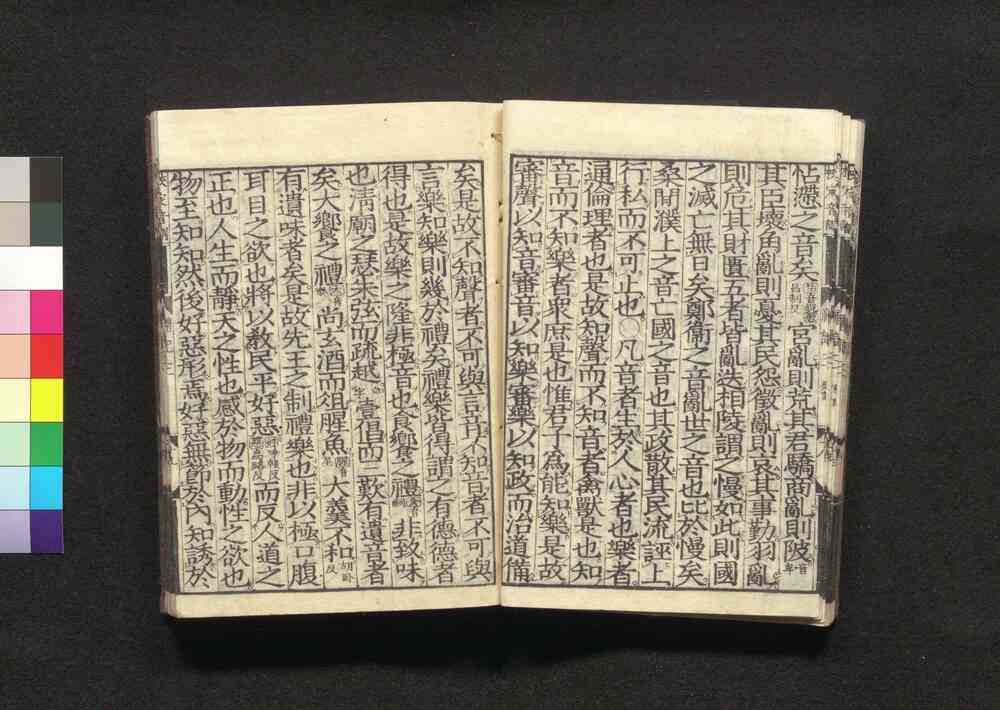 怗懘之音矣宮亂則荒其君驕商亂則陂
其臣壞角亂則憂其民怨徵亂則哀其事勤羽亂
則危其財匱五者皆亂迭相陵謂之慢如此則國
之滅亡無日矣鄭衞之音亂世之音也比於慢矣
桑間濮上之音亡國之音也其政散其民流誣上
行私而不可止也○凡音者生於人心者也樂者
通倫理者也是故知聲而不知音者禽獸是也知
音而不知樂者衆庶是也惟君子爲能知樂是故
審聲以知音審音以知樂審樂以知政而治道備
矣是故不知聲者不可與言音不知音者不可與
言樂知樂則幾於禮矣禮樂皆得謂之有德德者
得也是故樂之隆非極音也食饗之禮非致味
也淸廟之瑟朱弦而疏越壹倡而三歎有遺音者
矣大饗之禮尚玄酒而俎腥魚大羹不和胡臥反
有遺味者矣是故先王之制禮樂也非以極口腹
耳目之欲也將以敎民平好惡而反人道之
正也人生而靜天之性也感於物而動性之欲也
物至知知然後好惡形焉好惡無節於內知誘於